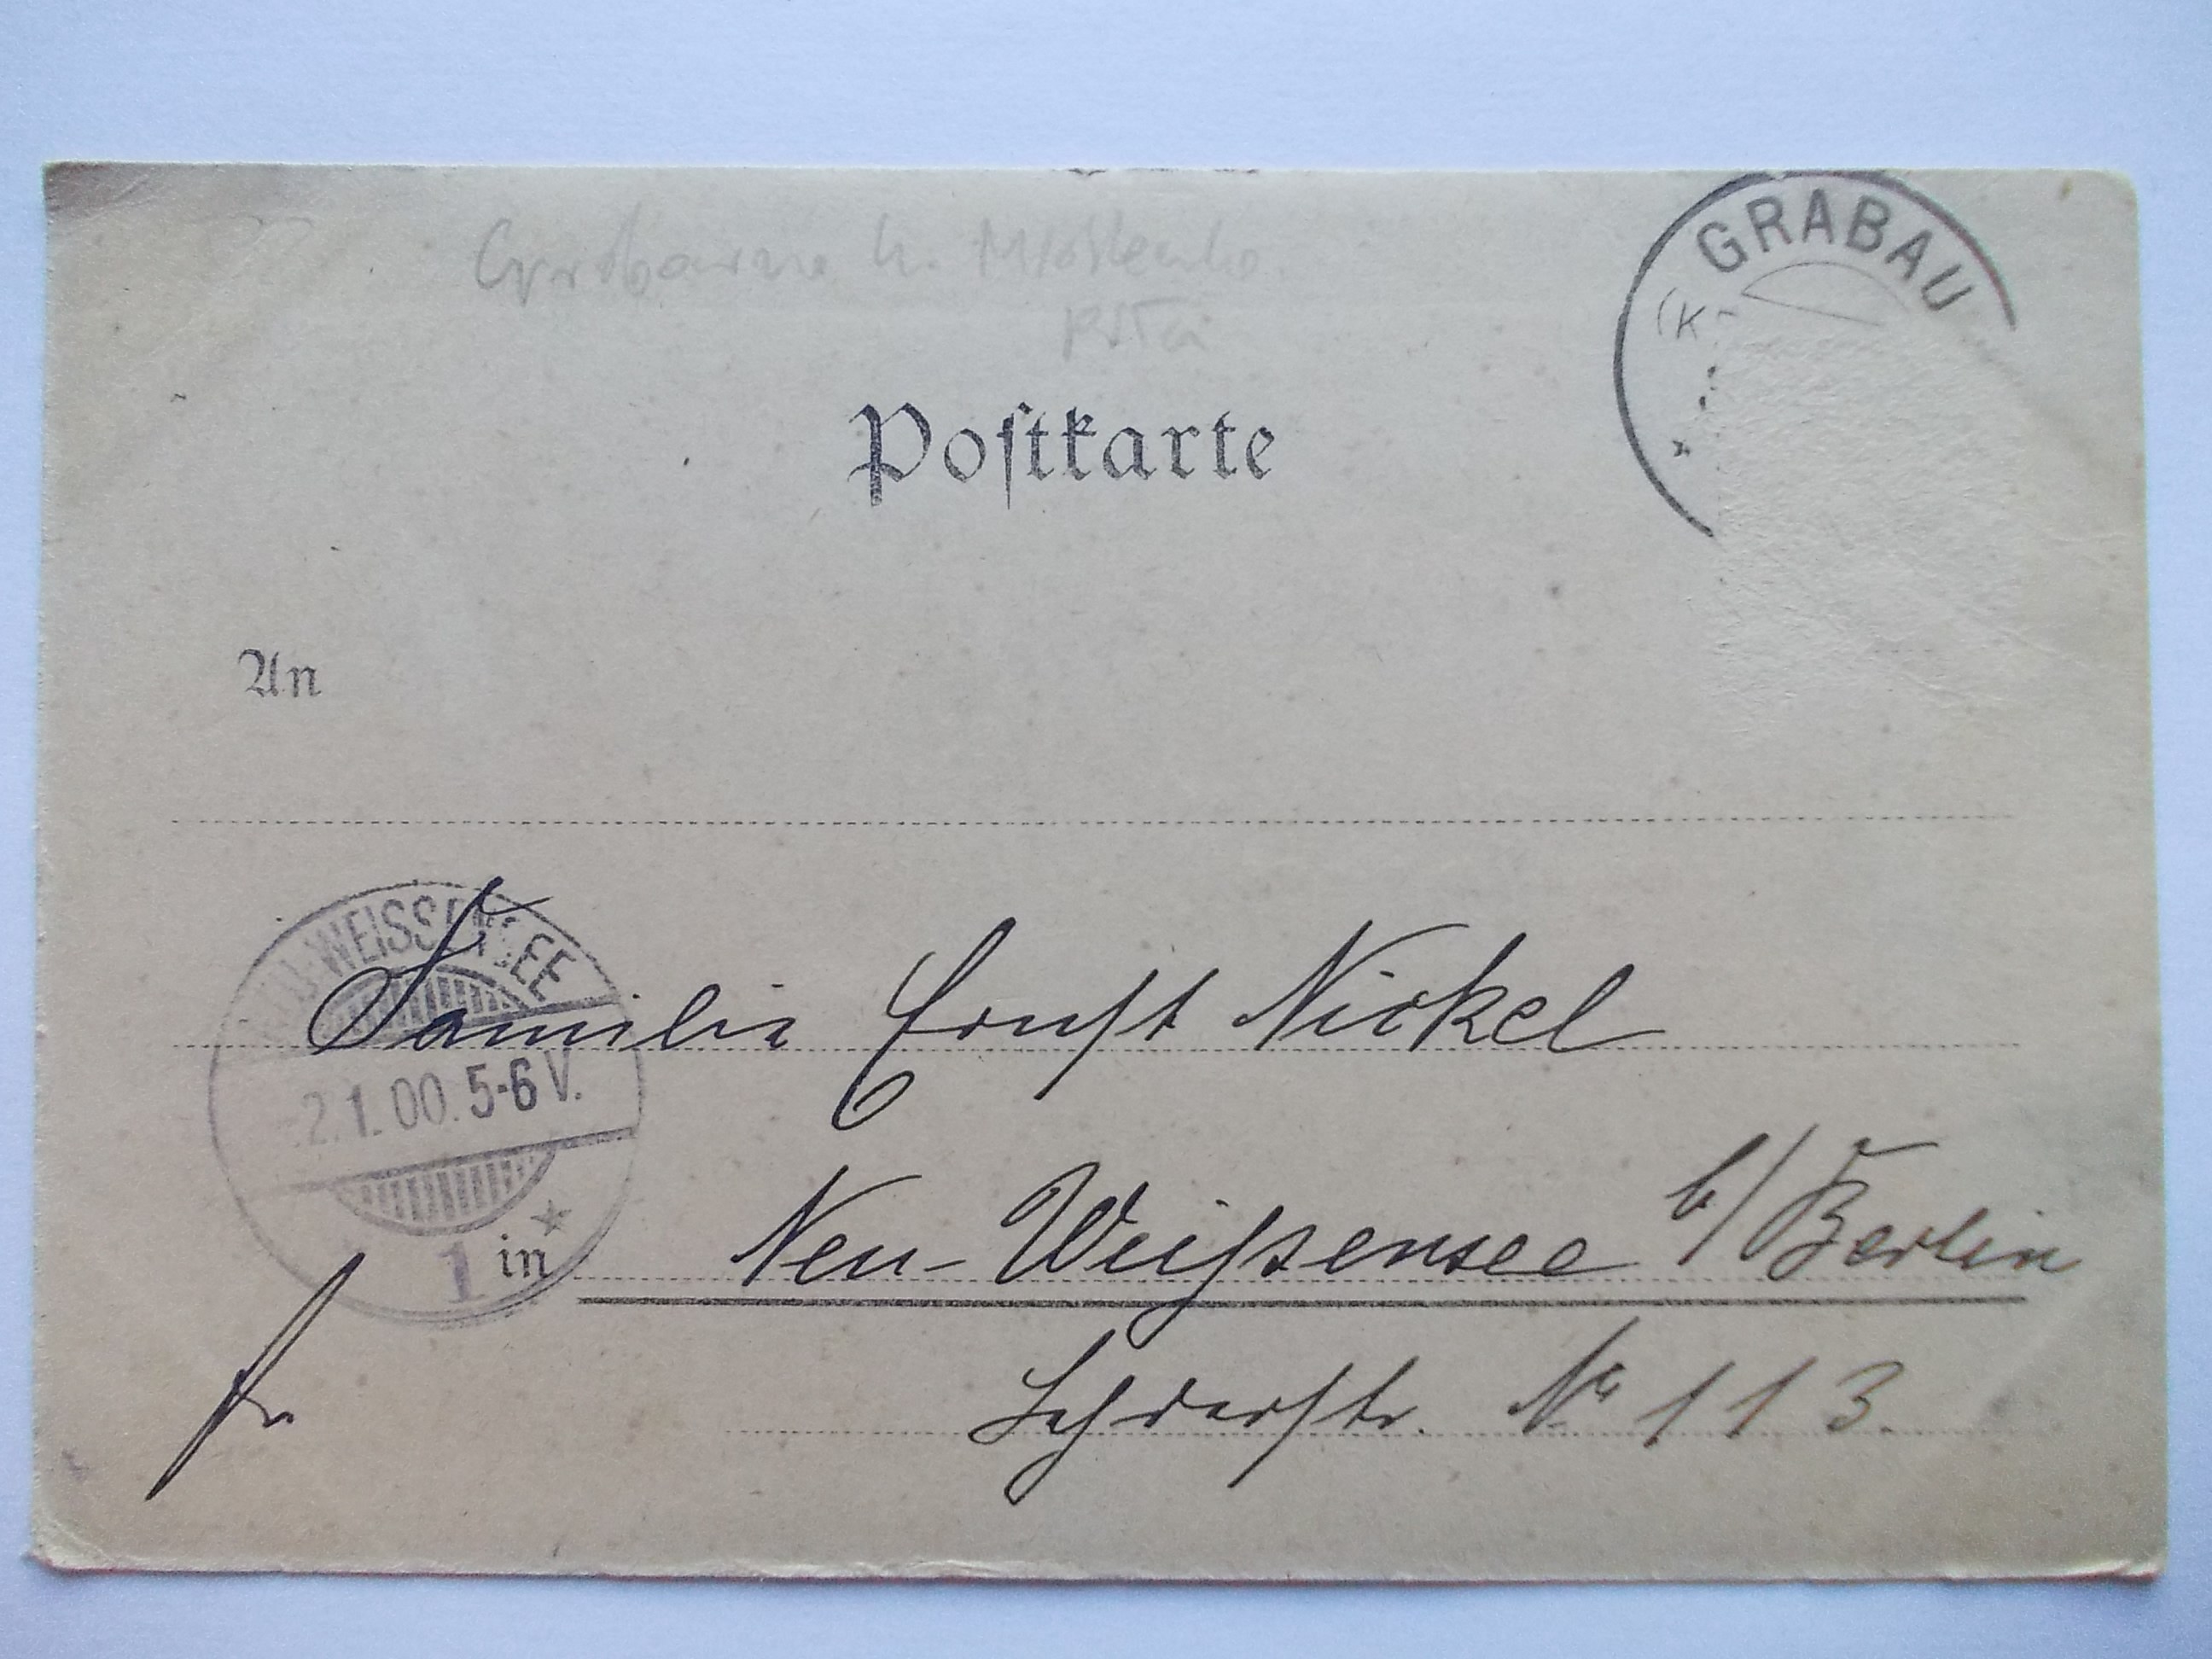 GRABAU
(K
Postkarte
An
NEU-WEISSENSEE
2.1.00.5-6V.
1
Familie Ernst Nickel
in Neu-Weißensee b/Berlin
Lehderstr. No 113.